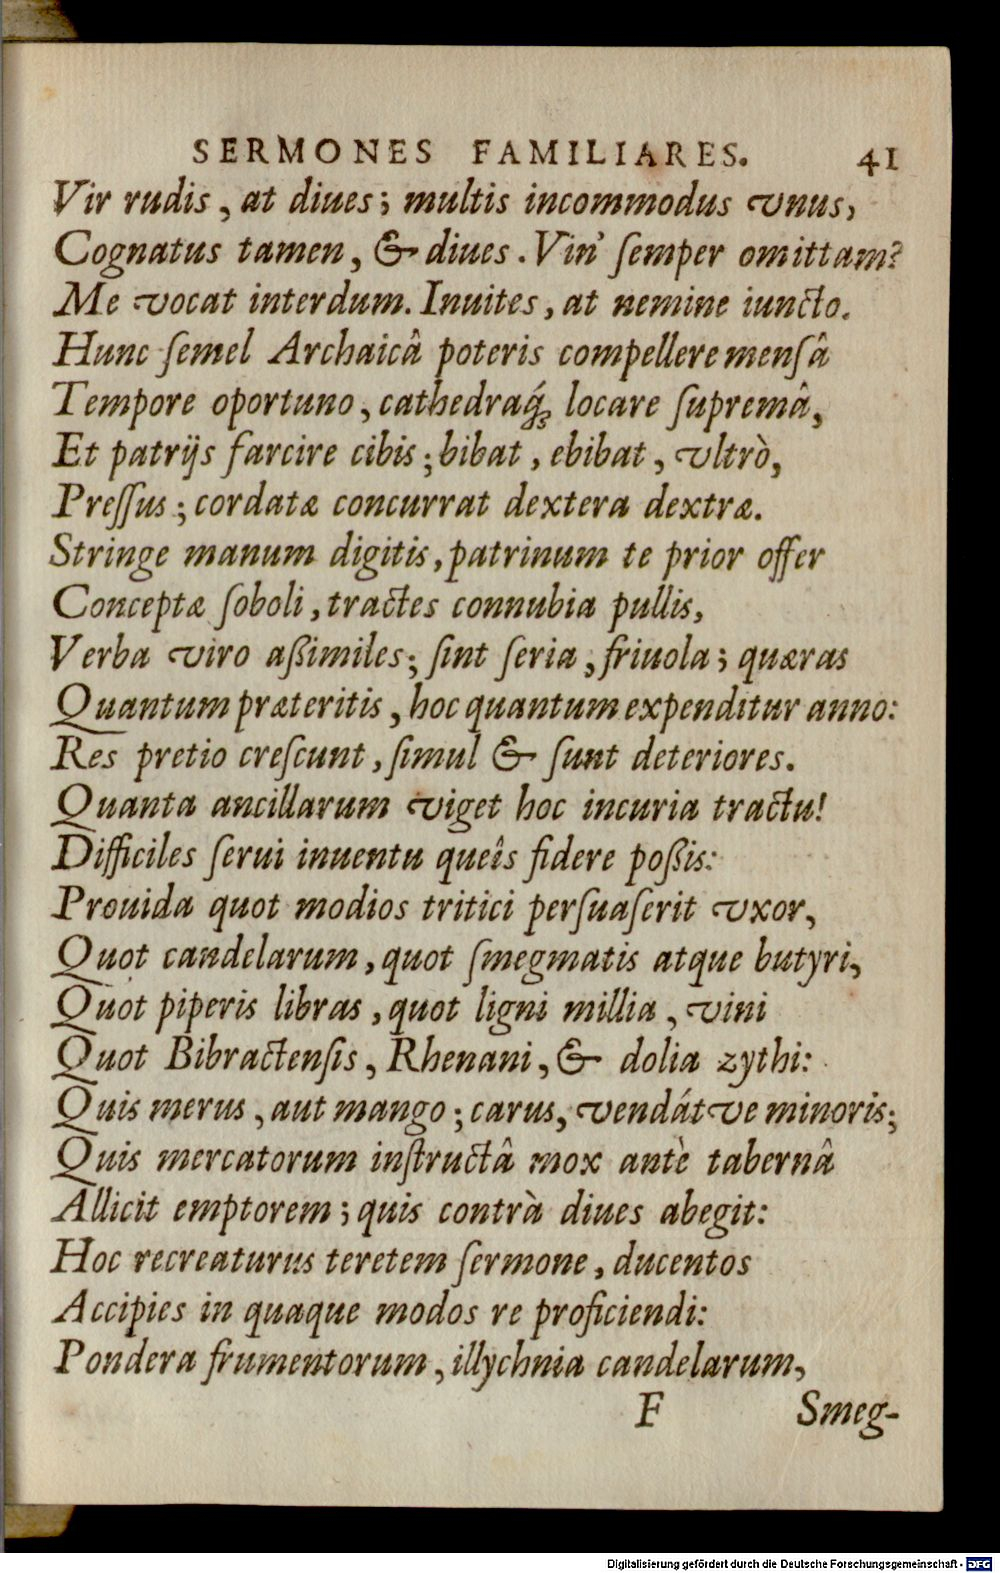 SERMONES FAMILIARES. 41
Vir rudis, at diues; multis incommodus vnus,
Cognatus tamen, & diues. Vin' ſemper omittam?
Me vocat interdum. Inuites, at nemine iuncto.
Hunc ſemel Archaicâ poteris compellere menſâ
Tempore oportuno, cathedraq́ꝫ locare ſupremâ,
Et patrijs farcire cibis; bibat, ebibat, vltrò,
Preſſus; cordatæ concurrat dextera dextræ.
Stringe manum digitis, patrinum te prior offer
Conceptæ ſoboli, tractes connubia pullis,
Verba viro aßimiles; ſint ſeria, friuola; quæras
Quantum præteritis, hoc quantum expenditur anno:
Res pretio creſcunt, ſimul & ſunt deteriores.
Quanta ancillarum viget hoc incuria tractu!
Difficiles ſerui inuentu queîs fidere poßis:
Prouida quot modios tritici perſuaſerit vxor,
Quot candelarum, quot ſmegmatis atque butyri,
Quot piperis libras, quot ligni millia, vini
Quot Bibractenſis, Rhenani, & dolia zythi:
Quis merus, aut mango; carus, vendátve minoris;
Quis mercatorum inſtructâ mox antè tabernâ
Allicit emptorem; quis contrà diues abegit:
Hoc recreaturus teretem ſermone, ducentos
Accipies in quaque modos re proficiendi:
Pondera frumentorum, illychnia candelarum,
F Smeg-
Digitalisierung gefördert durch die Deutsche Forschungsgemeinschaft - DFG